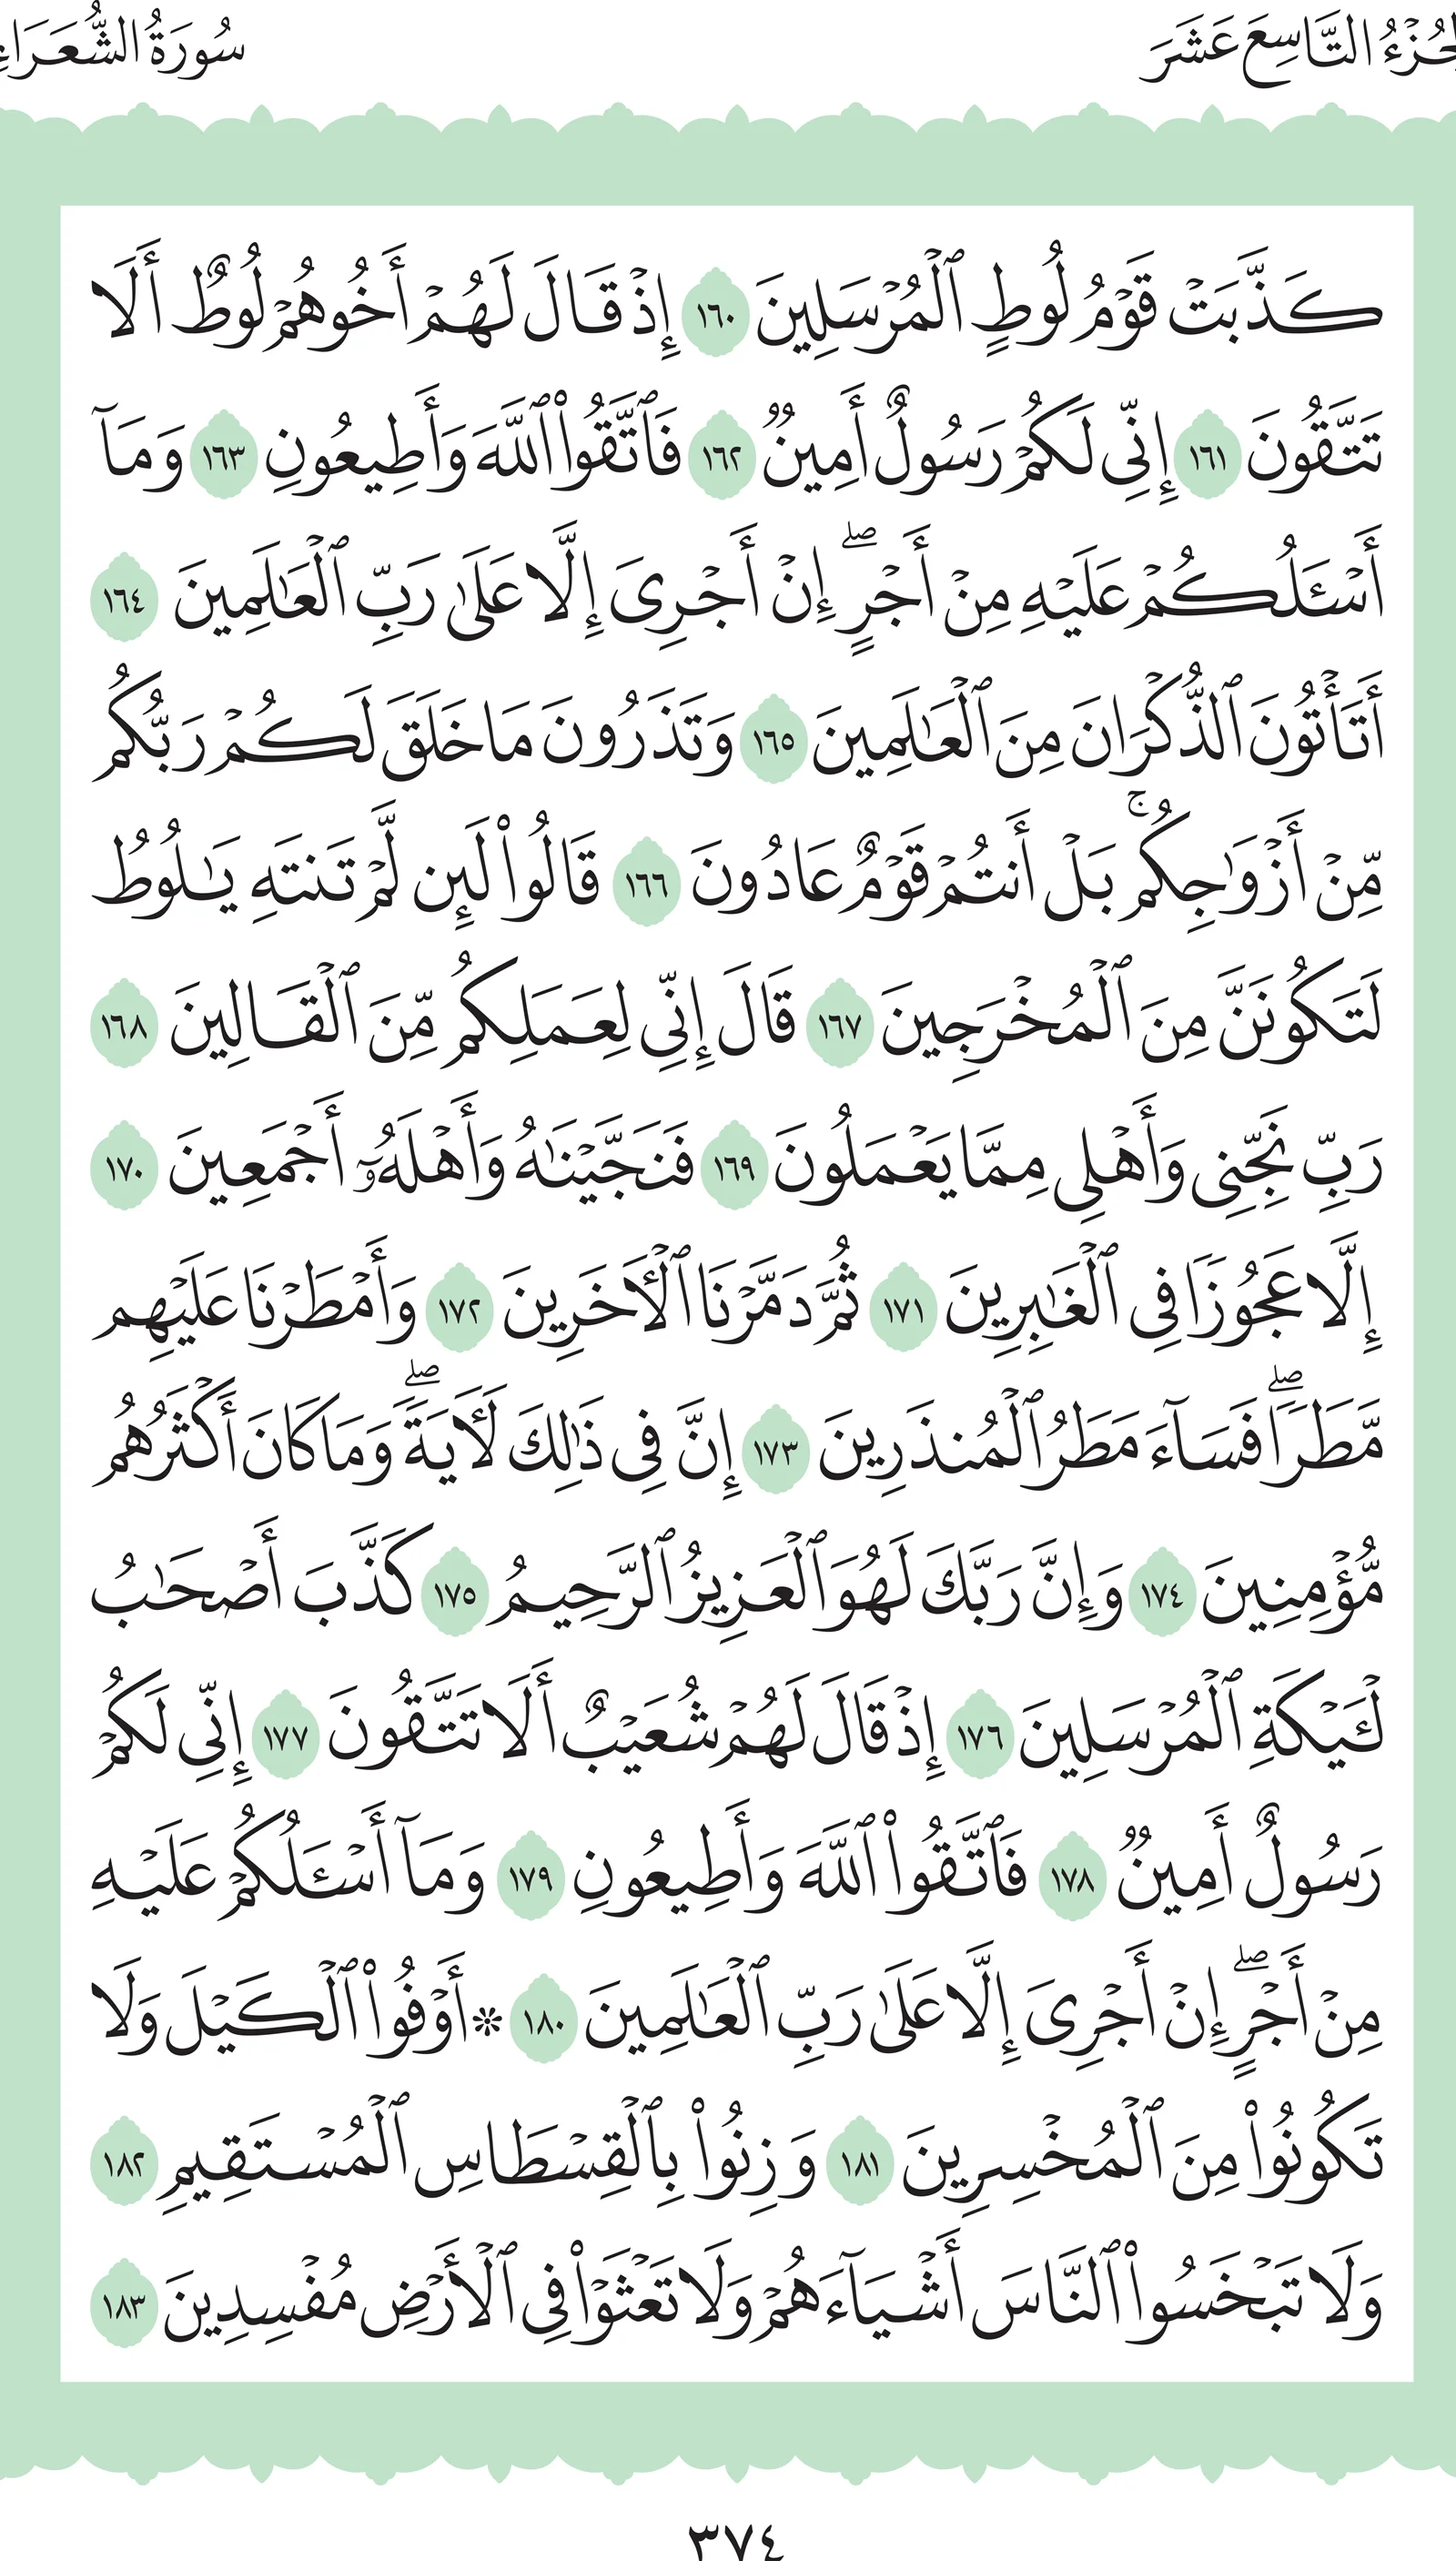 الجُزْءُ التَّاسِعَ عَشَرَ
سُورَةُ الشُّعَرَاءِ
كَذَّبَتْ قَوْمُ لُوطٍ ٱلْمُرْسَلِينَ ١٦٠ إِذْ قَالَ لَهُمْ أَخُوهُمْ لُوطٌ أَلَا
تَتَّقُونَ ١٦١ إِنِّى لَكُمْ رَسُولٌ أَمِينٌ ١٦٢ فَٱتَّقُوا۟ ٱللَّهَ وَأَطِيعُونِ ١٦٣ وَمَآ
أَسْـَٔلُكُمْ عَلَيْهِ مِنْ أَجْرٍ ۖ إِنْ أَجْرِىَ إِلَّا عَلَىٰ رَبِّ ٱلْعَـٰلَمِينَ ١٦٤
أَتَأْتُونَ ٱلذُّكْرَانَ مِنَ ٱلْعَـٰلَمِينَ ١٦٥ وَتَذَرُونَ مَا خَلَقَ لَكُمْ رَبُّكُم
مِّنْ أَزْوَٰجِكُم ۚ بَلْ أَنتُمْ قَوْمٌ عَادُونَ ١٦٦ قَالُوا۟ لَئِن لَّمْ تَنتَهِ يَـٰلُوطُ
لَتَكُونَنَّ مِنَ ٱلْمُخْرَجِينَ ١٦٧ قَالَ إِنِّى لِعَمَلِكُم مِّنَ ٱلْقَالِينَ ١٦٨
رَبِّ نَجِّنِى وَأَهْلِى مِمَّا يَعْمَلُونَ ١٦٩ فَنَجَّيْنَـٰهُ وَأَهْلَهُۥٓ أَجْمَعِينَ ١٧٠
إِلَّا عَجُوزًا فِى ٱلْغَـٰبِرِينَ ١٧١ ثُمَّ دَمَّرْنَا ٱلْـَٔاخَرِينَ ١٧٢ وَأَمْطَرْنَا عَلَيْهِم
مَّطَرًا ۖ فَسَآءَ مَطَرُ ٱلْمُنذَرِينَ ١٧٣ إِنَّ فِى ذَٰلِكَ لَـَٔايَةً ۖ وَمَا كَانَ أَكْثَرُهُم
مُّؤْمِنِينَ ١٧٤ وَإِنَّ رَبَّكَ لَهُوَ ٱلْعَزِيزُ ٱلرَّحِيمُ ١٧٥ كَذَّبَ أَصْحَـٰبُ
لْـَٔيْكَةِ ٱلْمُرْسَلِينَ ١٧٦ إِذْ قَالَ لَهُمْ شُعَيْبٌ أَلَا تَتَّقُونَ ١٧٧ إِنِّى لَكُمْ
رَسُولٌ أَمِينٌ ١٧٨ فَٱتَّقُوا۟ ٱللَّهَ وَأَطِيعُونِ ١٧٩ وَمَآ أَسْـَٔلُكُمْ عَلَيْهِ
مِنْ أَجْرٍ ۖ إِنْ أَجْرِىَ إِلَّا عَلَىٰ رَبِّ ٱلْعَـٰلَمِينَ ١٨٠ ۞ أَوْفُوا۟ ٱلْكَيْلَ وَلَا
تَكُونُوا۟ مِنَ ٱلْمُخْسِرِينَ ١٨١ وَزِنُوا۟ بِٱلْقِسْطَاسِ ٱلْمُسْتَقِيمِ ١٨٢
وَلَا تَبْخَسُوا۟ ٱلنَّاسَ أَشْيَآءَهُمْ وَلَا تَعْثَوْا۟ فِى ٱلْأَرْضِ مُفْسِدِينَ ١٨٣
٣٧٤